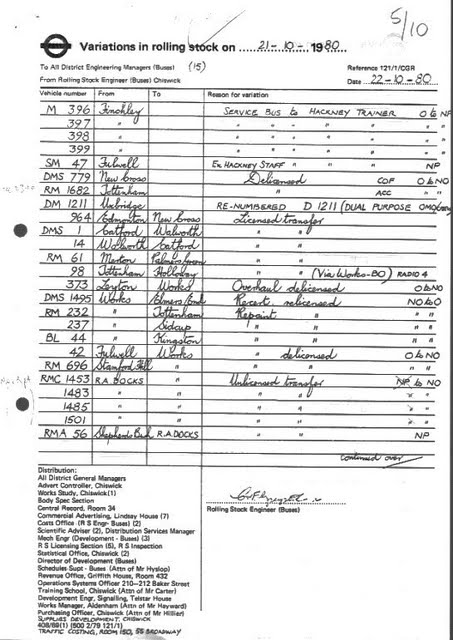 5/10
Variations in rolling stock on 21-10-1980
To All District Engineering Managers (Buses) (15) Reference 121/1/CGR
From Rolling Stock Engineer (Buses) Chiswick Date 22-10-80
Vehicle number From To Reason for variation
M 396 Finchley SERVICE BUS to HACKNEY TRAINER O to NP
397 " " " " " " "
398 " " " " " " "
399 " " " " " " "
SM 47 Fulwell Ex HACKNEY STAFF " " " NP
DMS 779 New Cross Delicensed COF O to NO
RM 1682 Tottenham " ACC " "
DM 1211 Uxbridge RE-NUMBERED D 1211 (DUAL PURPOSE
964 Edmonton New Cross Licensed transfer
DMS 1 Catford Walworth " "
14 Walworth Catford " "
RM 61 Merton Palmers Green " "
98 Tottenham Holloway " " (Via Works-BO) RADIO 4
373 Leyton Works Overhaul delicensed O to NO
DMS 1495 Works Elmers End Recert. relicensed NO to O
RM 232 " Tottenham Repaint " " "
237 " Sidcup " " " "
BL 44 " Kingston " " " "
42 Fulwell Works " delicensed O to NO
RM 696 Stamford Hill " " " " "
RMC 1453 R.A DOCKS " Unlicensed transfer NP to NO
1483 " " " " "
1485 " " " " "
1501 " " " " "
RMA 56 Shepherds Bush R.A DOCKS " " NP
continued over
Distribution:
All District General Managers
Advert Controller, Chiswick
Works Study, Chiswick (1)
Body Spec Section
Central Record, Room 34
Commercial Advertising, Lindsay House (7)
Costs Office (R S Engr- Buses) (2)
Scientific Adviser (2), Distribution Services Manager
Mech Engr (Development - Buses) (3)
R S Licensing Section (5), R S Inspection
Statistical Office, Chiswick (2)
Director of Development (Buses)
Schedules Supt - Buses (Attn of Mr Hyslop)
Revenue Office, Griffith House, Room 432
Operations Systems Officer 210-212 Baker Street
Training School, Chiswick (Attn of Mr Carter)
Development Engr, Signalling, Telstar House
Works Manager, Aldenham (Attn of Mr Hayward)
Purchasing Officer, Chiswick (Attn of Mr Hillier)
SUPPLIES DEVELOPMENT, CHISWICK
408/69(1) (500 2/79 121/1)
TRAFFIC COSTING, ROOM 150, 55 BROADWAY
Rolling Stock Engineer (Buses)